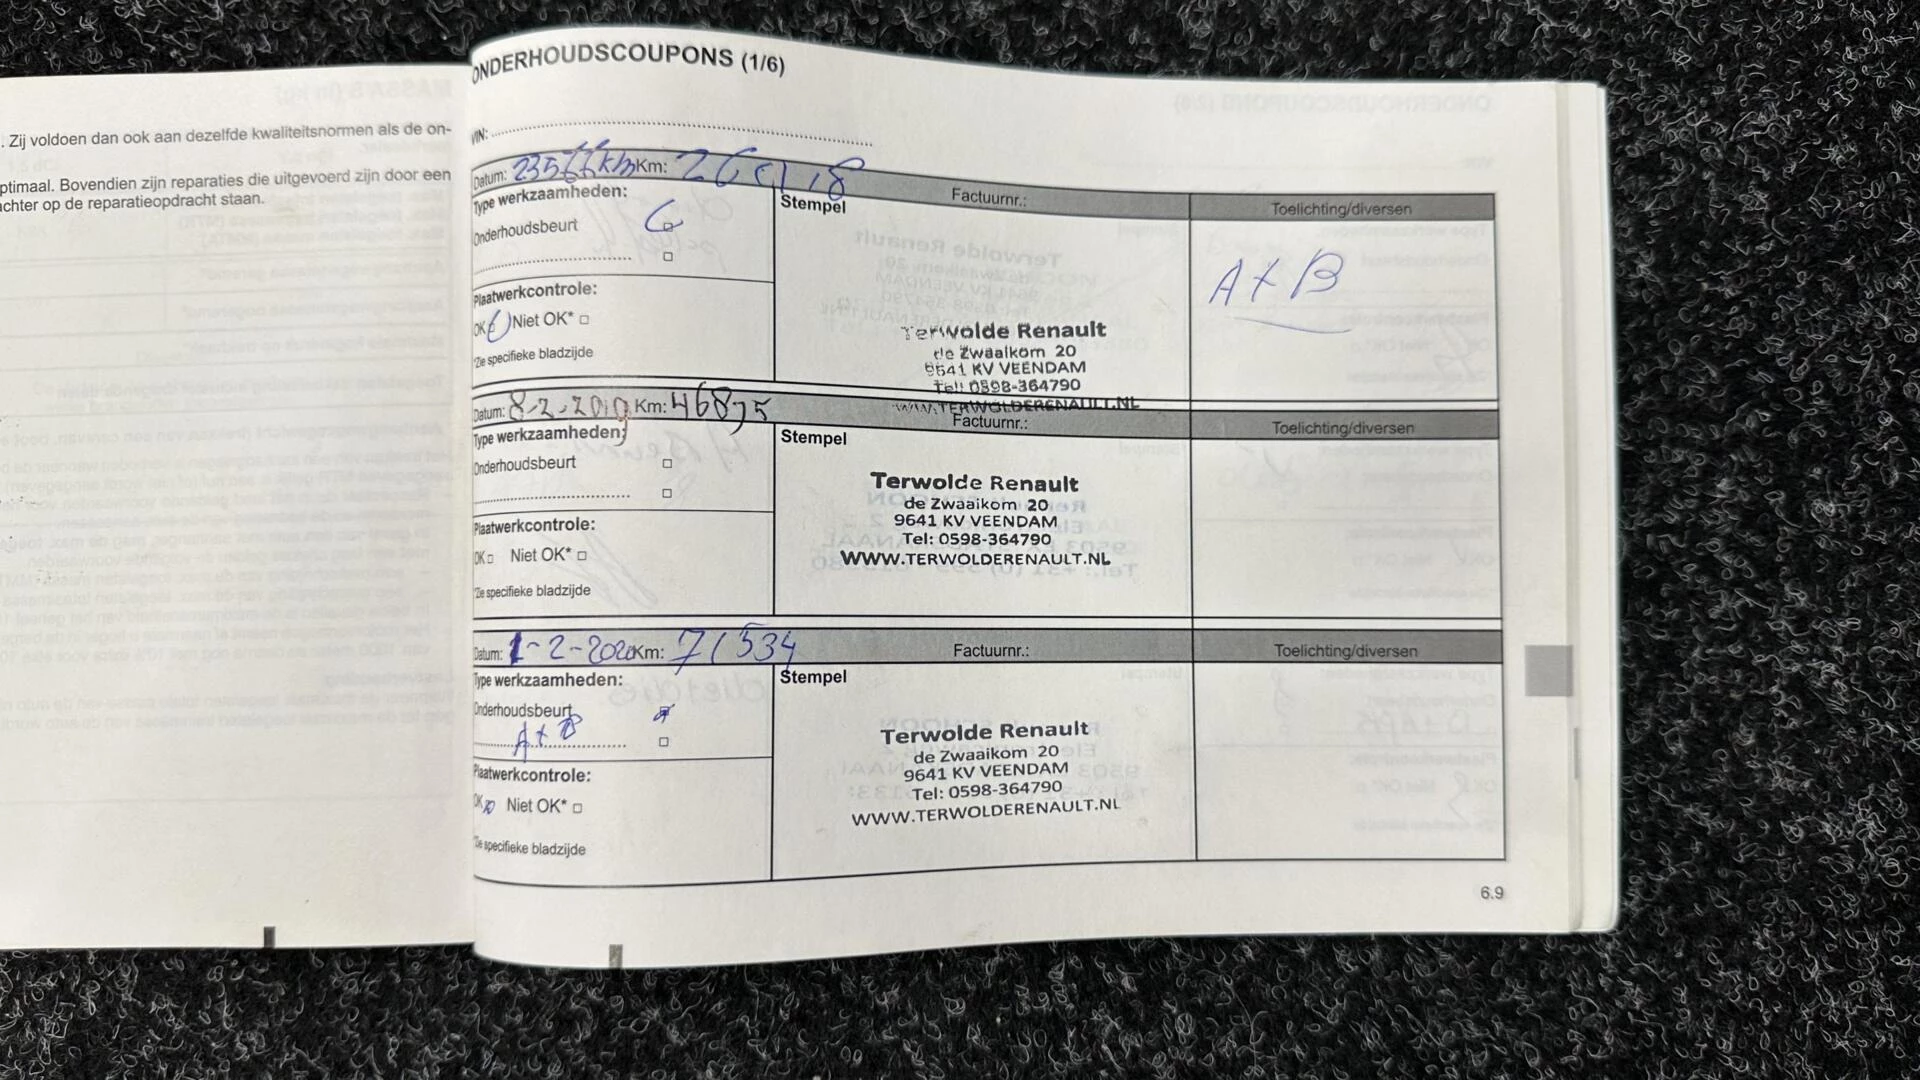 . Zij voldoen dan ook aan dezelfde kwaliteitsnormen als de on-
ptimaal. Bovendien zijn reparaties die uitgevoerd zijn door een
achter op de reparatieopdracht staan.
ONDERHOUDSCOUPONS (1/6)
VIN:
Datum: 23566km Km:
Factuurnr.:
Toelichting/diversen
Type werkzaamheden:
Stempel
Onderhoudsbeurt
A + B
Plaatwerkcontrole:
OK Niet OK*
*Zie specifieke bladzijde
Terwolde Renault
de Zwaaikom 20
9641 KV VEENDAM
Tel: 0598-364790
WWW.TERWOLDERENAULT.NL
Datum: 8-2-2019 Km: 46875
Factuurnr.:
Toelichting/diversen
Type werkzaamheden:
Stempel
Onderhoudsbeurt
Plaatwerkcontrole:
OK Niet OK*
*Zie specifieke bladzijde
Terwolde Renault
de Zwaaikom 20
9641 KV VEENDAM
Tel: 0598-364790
WWW.TERWOLDERENAULT.NL
Datum: 1-2-2020 Km: 71534
Factuurnr.:
Toelichting/diversen
Type werkzaamheden:
Stempel
Onderhoudsbeurt
A + B
Plaatwerkcontrole:
OK Niet OK*
*Zie specifieke bladzijde
Terwolde Renault
de Zwaaikom 20
9641 KV VEENDAM
Tel: 0598-364790
WWW.TERWOLDERENAULT.NL
6.9